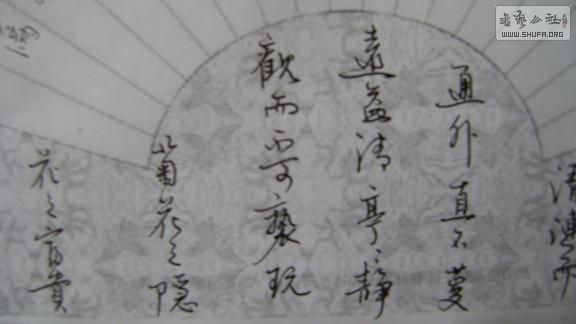 清漣而
通外直不蔓
遠益清亭〻静
觀而不可褻玩
菊花之隱
花之富貴
書藝公社
WWW.SHUFA.ORG